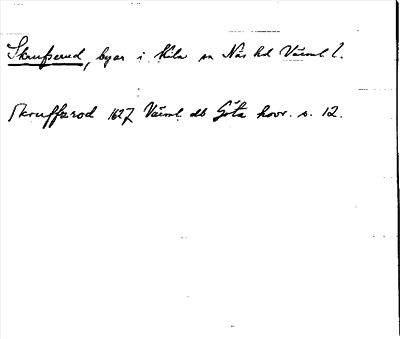 Skrufserud, byar i Kila sn Näs hd Värml l.
Skruffzrod 1627 Värml. db Göta hovr. s. 12.